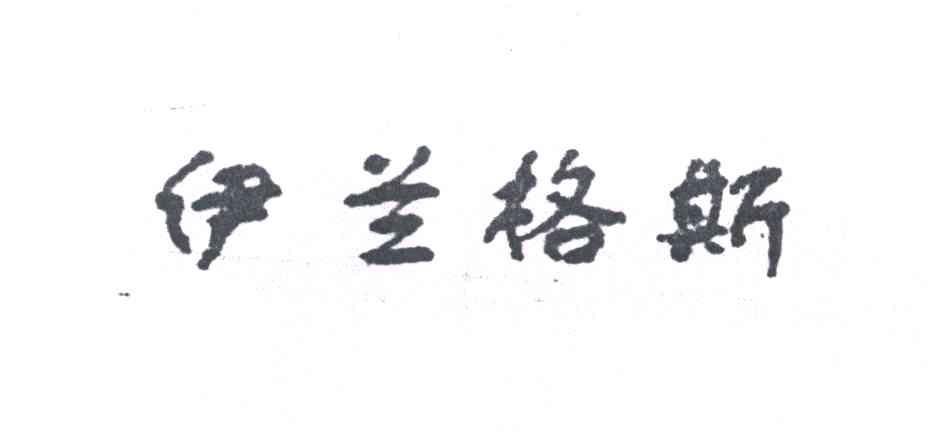 伊兰格斯